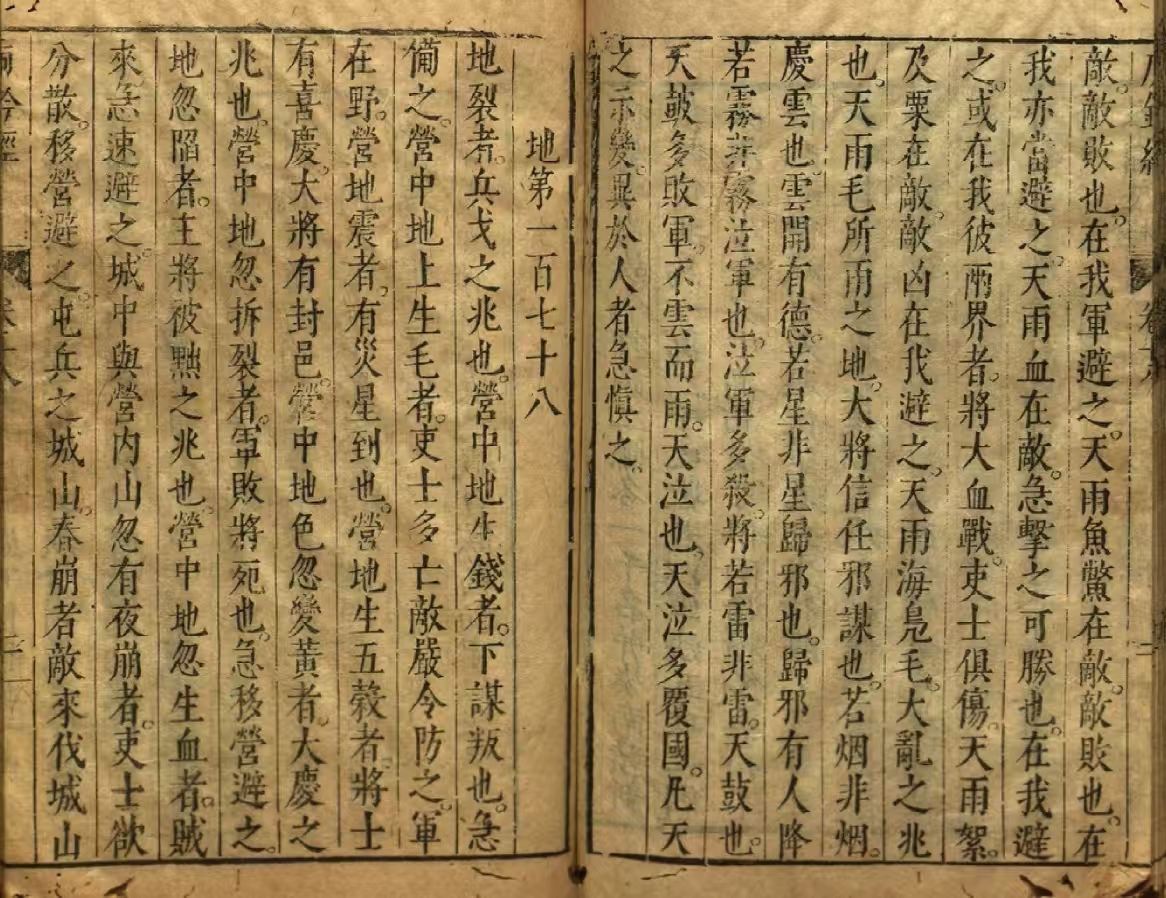 卷六
二
敵。敵敗也。在我軍避之。天雨魚鱉在敵。敵敗也。在
我亦當避之。天雨血在敵。急擊之可勝也。在我避
之。或在我彼兩界者。將大血戰。吏士俱傷。天雨絮。
及粟在敵。敵凶在我避之。天雨海鳧毛。大亂之兆
也。天雨毛所雨之地。大將信任邪謀也。若烟非烟。
慶雲也。雲開有德。若星非星歸邪也。歸邪有人降
若霧非霧泣軍也。泣軍多殺。將若雷非雷。天鼓也。
天鼓多敗軍。不雲而雨。天泣也。天泣多覆國。凡天
之示變異於人者急慎之。
地第一百七十八
地裂者。兵戈之兆也。營中地生錢者。下謀叛也。急
備之。營中地上生毛者。吏士多亡敵嚴令防之。軍
在野。營地震者。有災星到也。營地生五穀者。將士
有喜慶。大將有封邑。營中地色忽變黃者。大慶之
兆也。營中地忽拆裂者。軍敗將死也。急移營避之。
地忽陷者。主將被黜之兆也。營中地忽生血者。賊
來。急速避之。城中與營內山忽有夜崩者。吏士欲
分散。移營避之。屯兵之城山。春崩者敵來伐城山
二